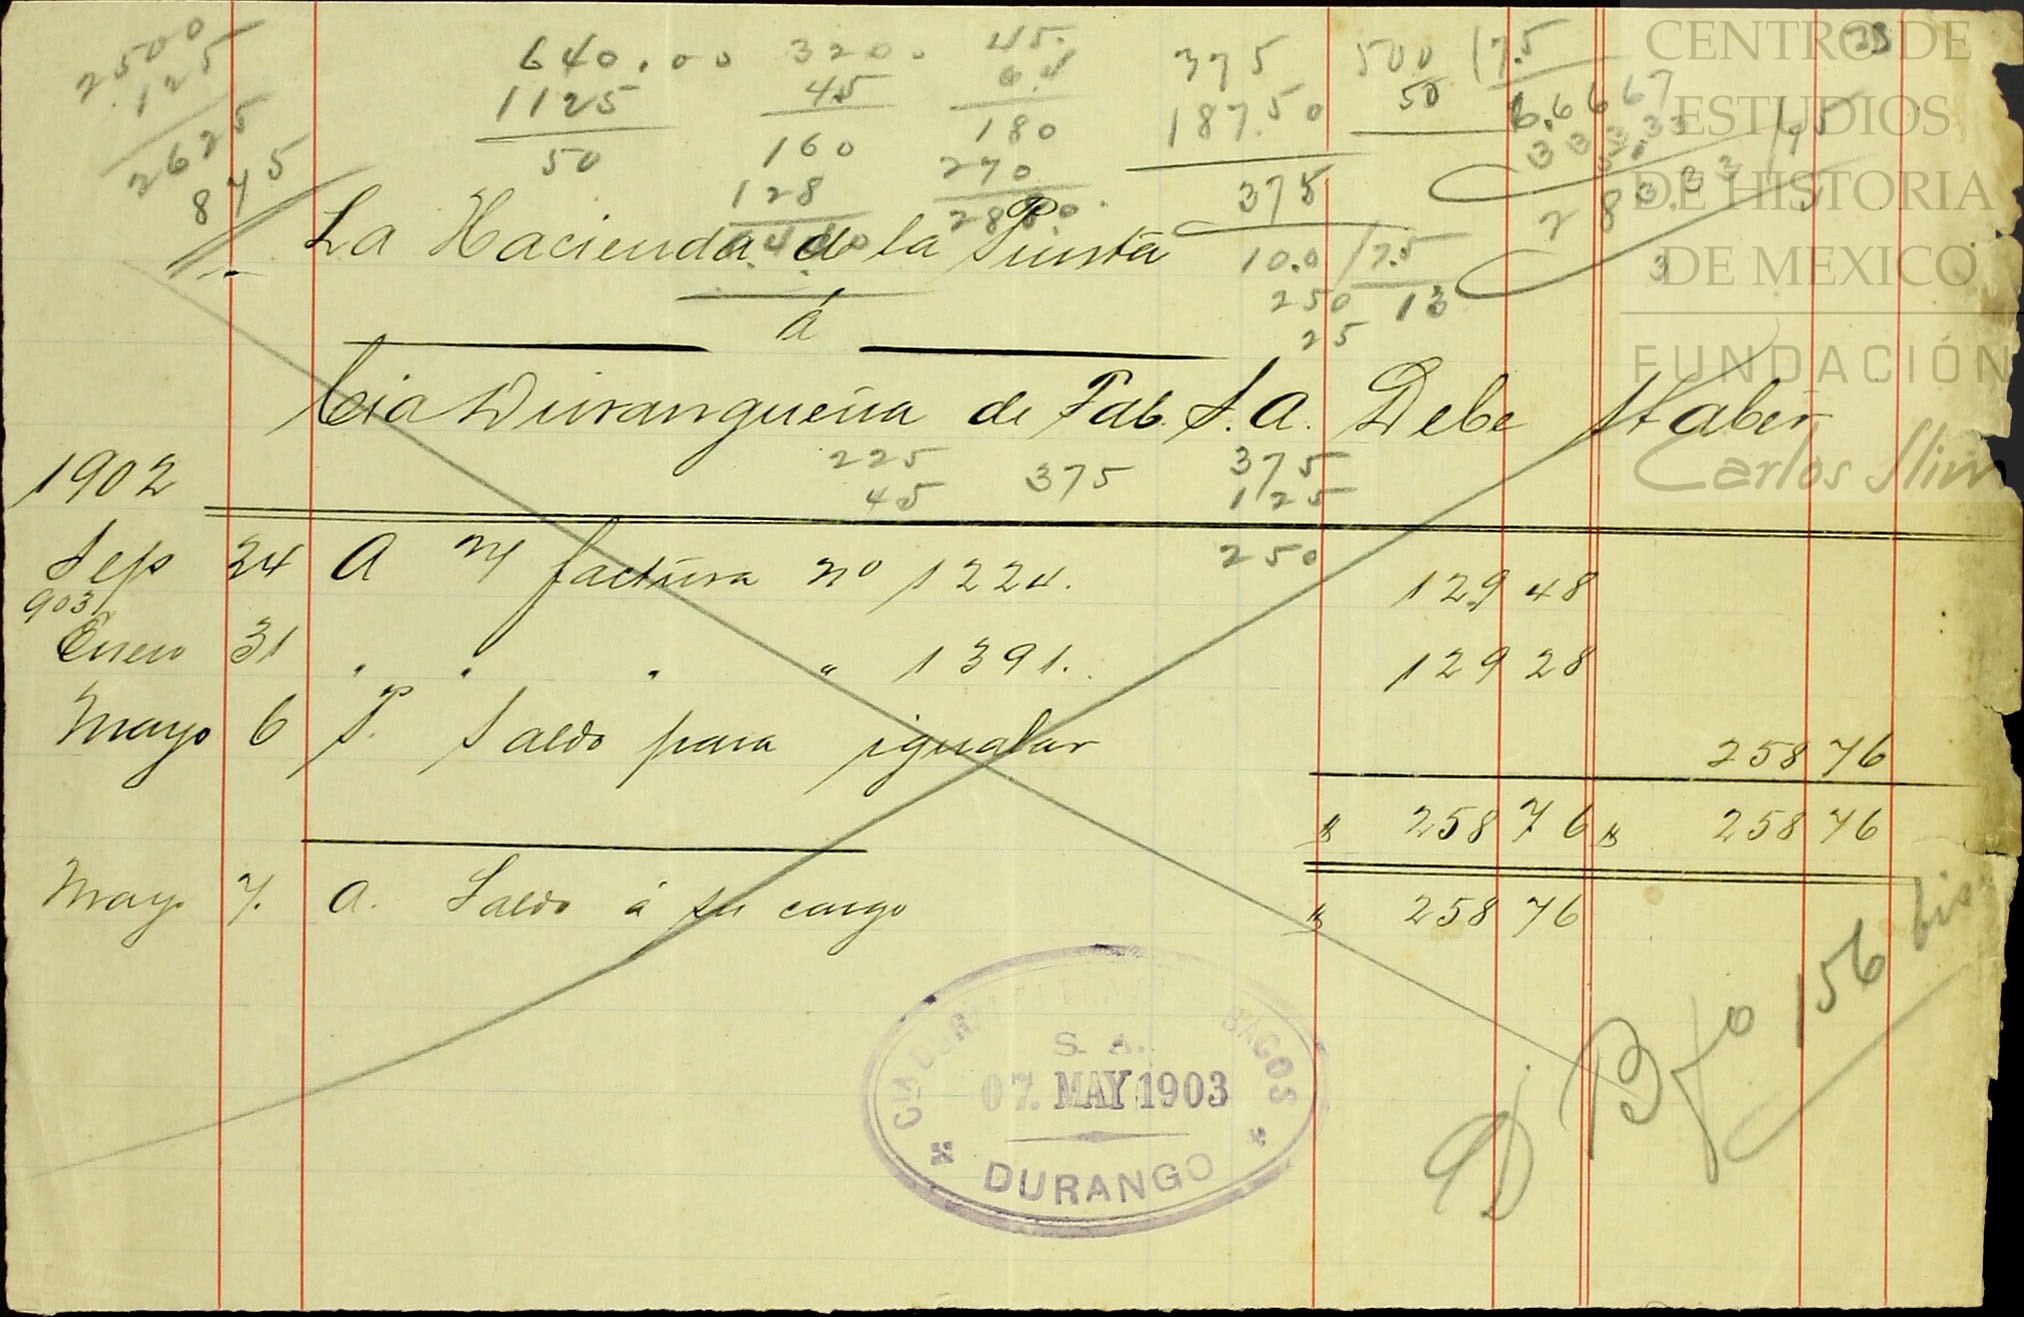 2500
125
2625
875
640.00
1125
50
320.
45
160
128
45.
64
180
270
2880.
375
187.50
375
500
50
17.5
6.6667
10.0 / 7.5
250 13
25
La Hacienda de la Punta
á
Cia Durangueña de Tab. S. A. Debe Haber
225
45
375
375
125
250
1902
Sep 24 A n/ factura no 1224. 129 48
903
Enero 31 " " " " 1391. 129 28
Mayo 6 P. Saldo para igualar 258 76
$ 258 76 $ 258 76
Mayo 7. A. Saldo á su cargo $ 258 76
CIA DURANGUEÑA DE TABACOS
S. A.
07. MAY 1903
DURANGO
D. B fo 156 bis
CENTRO DE
ESTUDIOS
DE HISTORIA
DE MEXICO
FUNDACIÓN
Carlos Slim